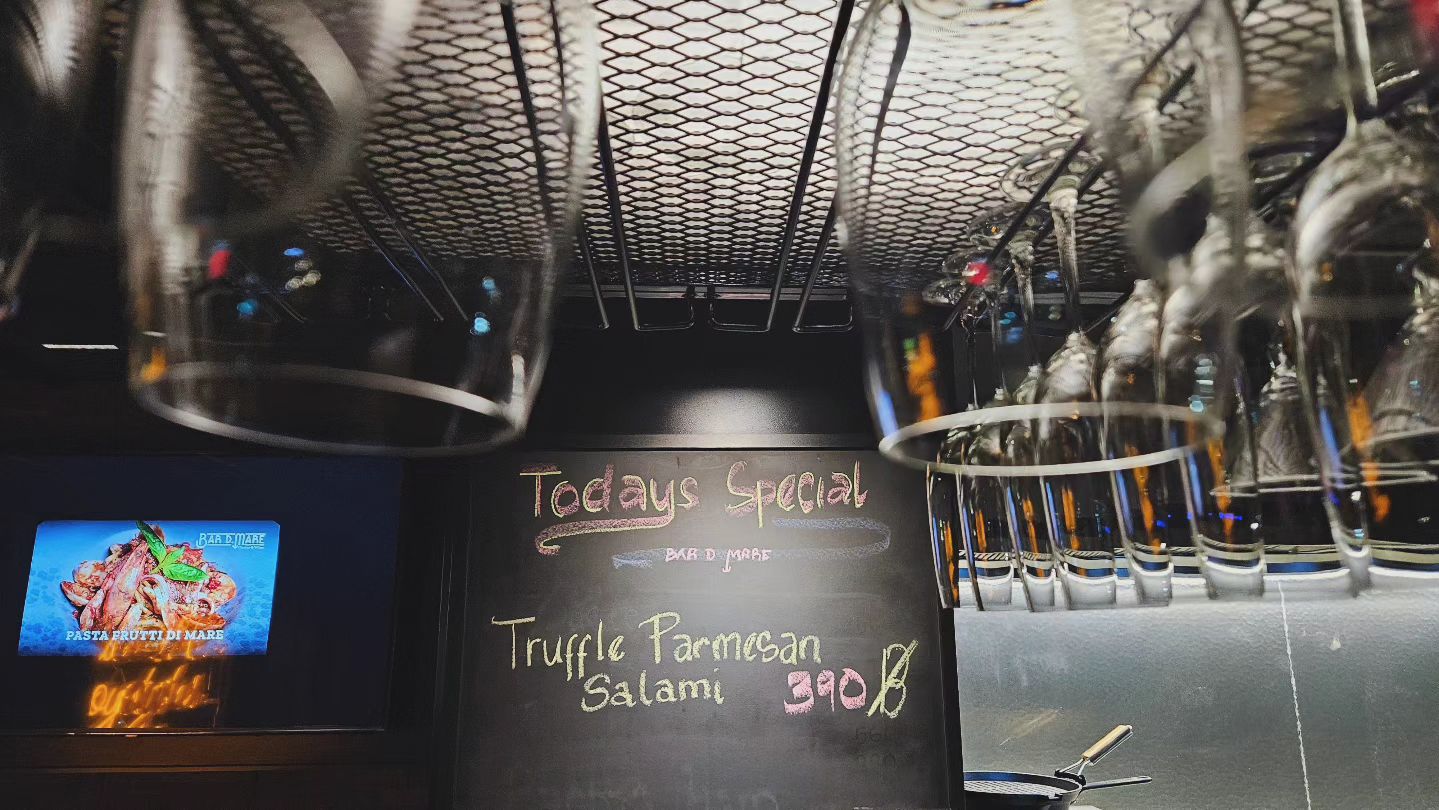 Todays Special
BAR D MARE
Truffle Parmesan
Salami 390 ฿
BAR D MARE
PASTA FRUTTI DI MARE